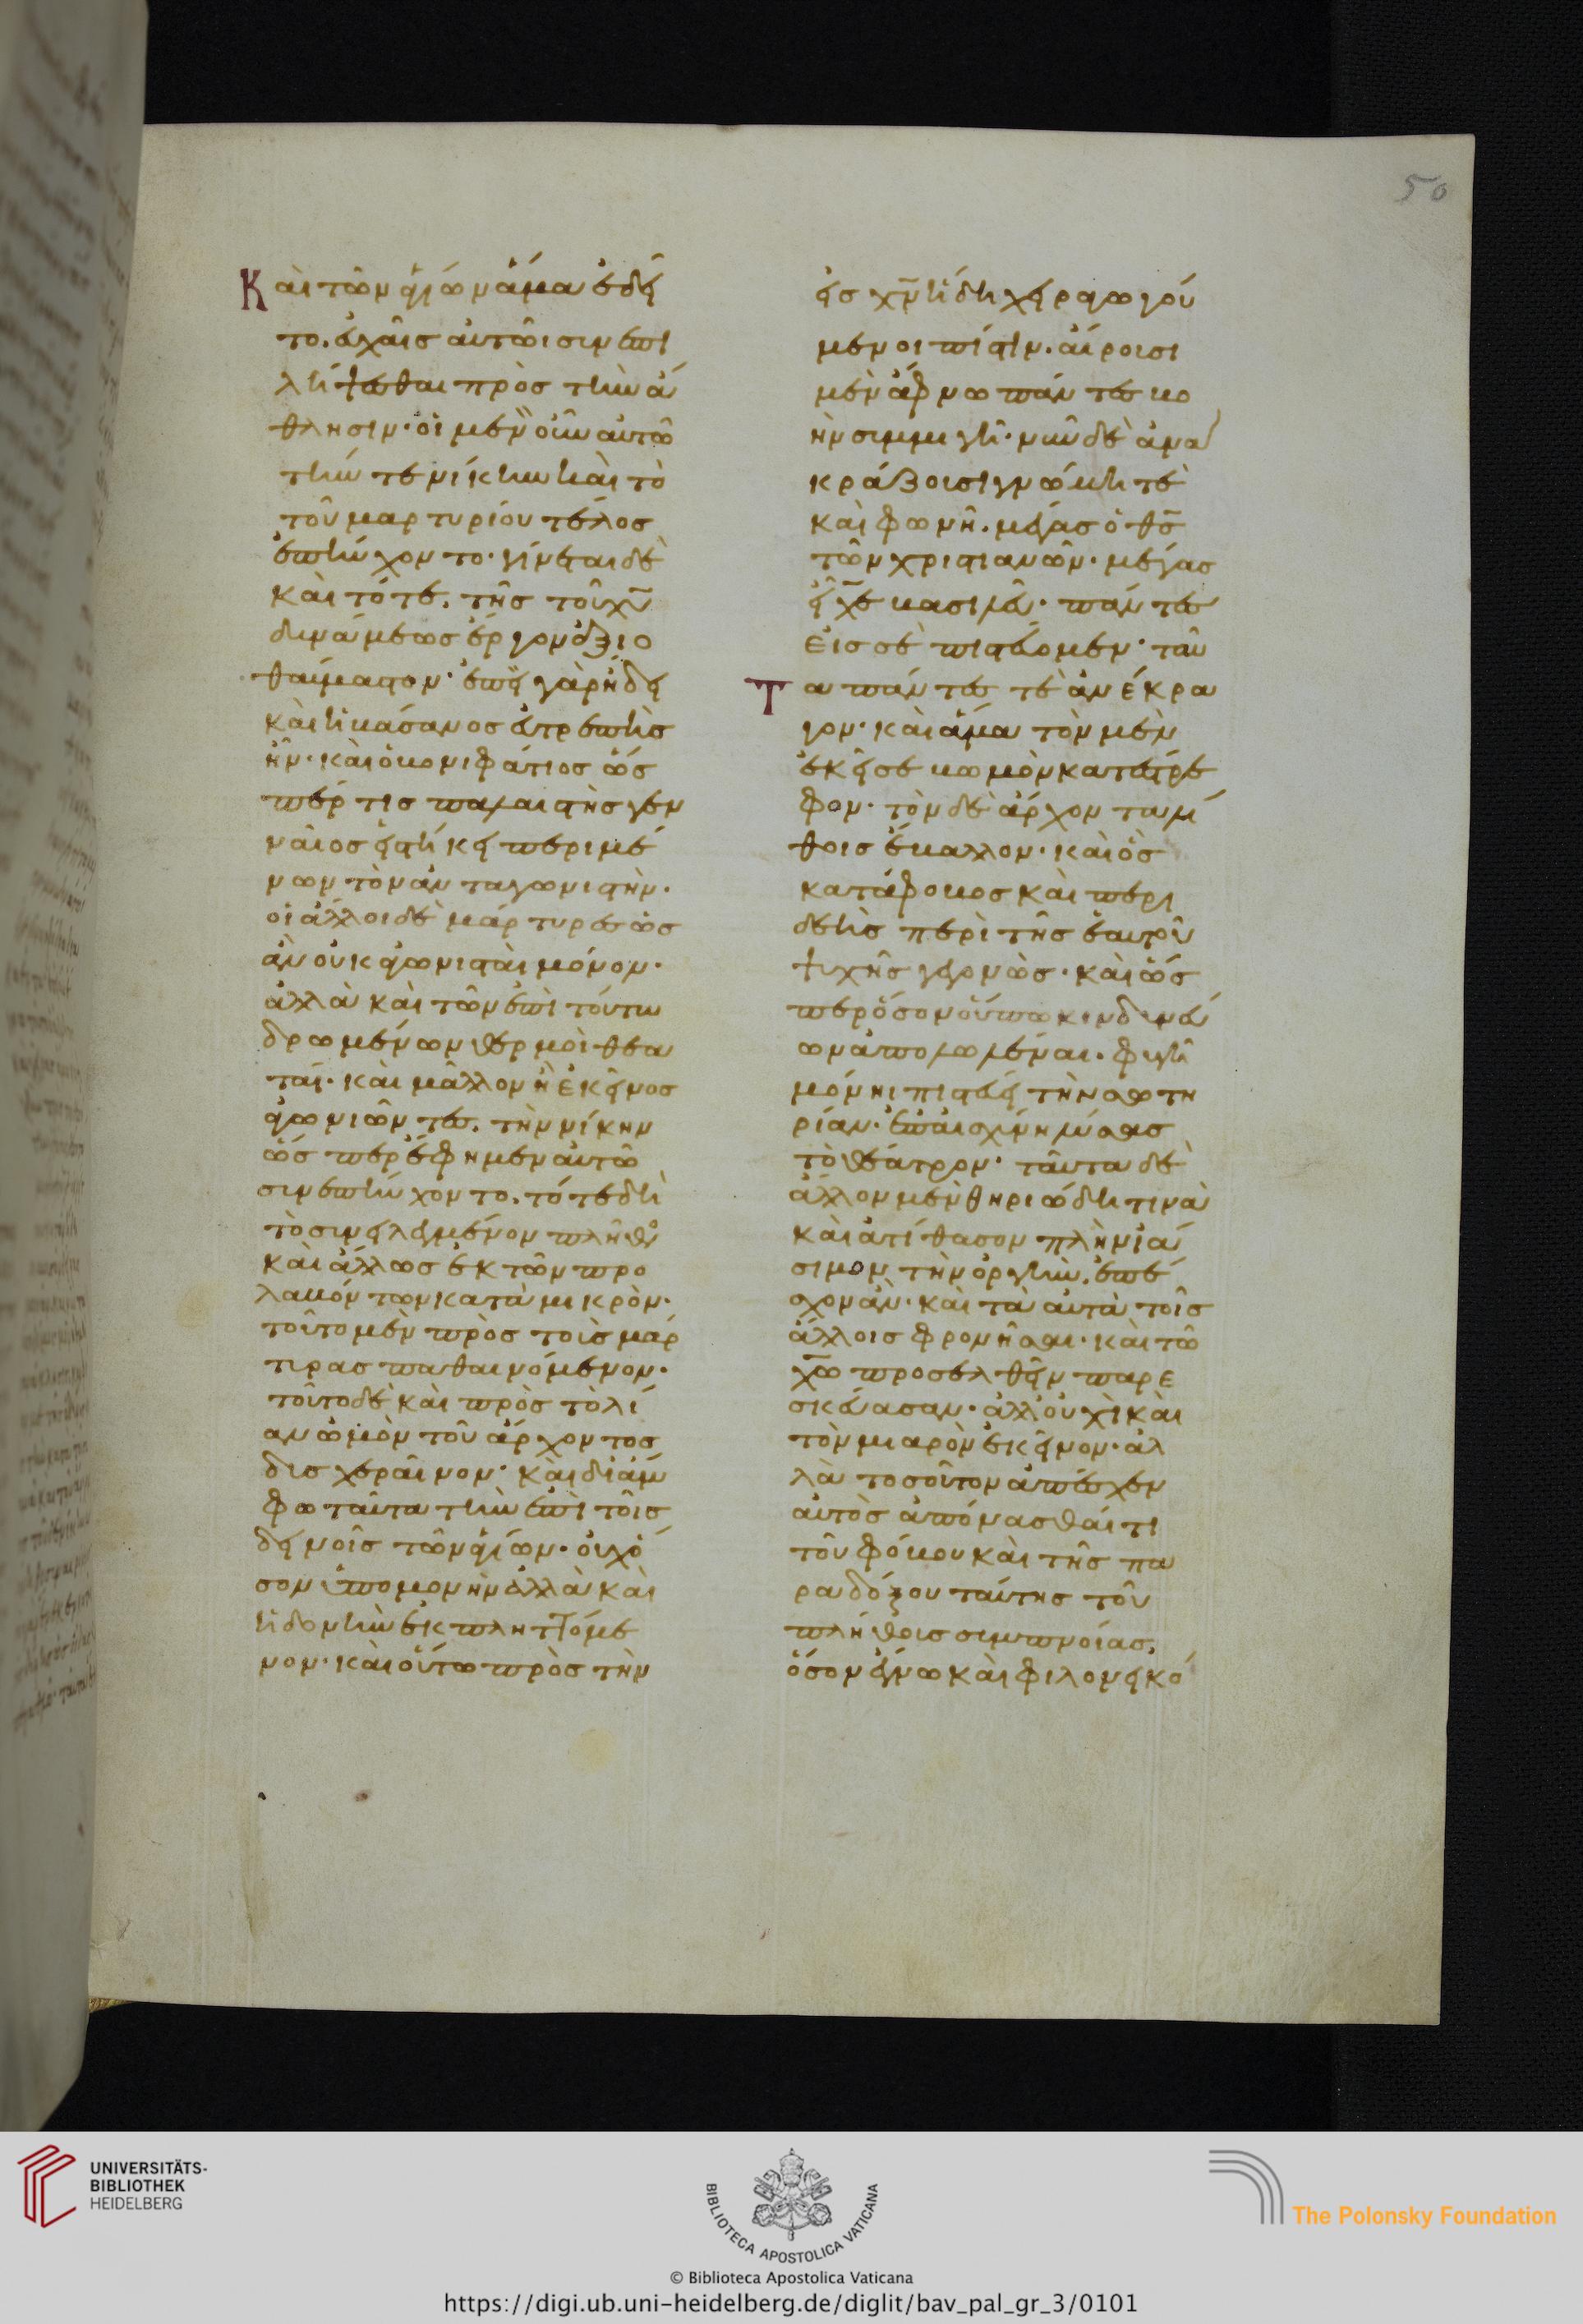 50
Καὶ τῶν ἁγίων ἅμα ἐδεῖ
το. εὐχαῖς αὐτῶι συνεπι
λήψεσθαι πρὸς τὴν ἄ
θλησιν· οἱ μὲν οὖν αὐτῶ
τήν τε νίκην καὶ τὸ
τοῦ μαρτυρίου τέλος
ἐπηύχοντο· γίνεται δὲ
καὶ τότε. τῆς τοῦ χυ̅
δυνάμεως ἔργον ἀξιο
θαύμαστον· ἐπεὶ γὰρ ἤδη
καὶ ἡ βάσανος εὐτρεπὴς
ἦν· καὶ ὁ βονιφάτιος ὥσ
περ τις παλαιστὴς γεν
ναῖος εἱστήκει περιμέ
νων τὸν ἀνταγωνιστὴν·
οἱ ἄλλοι δὲ μάρτυρες ὡς
ἂν οὐκ ἀγωνισταὶ μόνον·
ἀλλὰ καὶ τῶν ἐπὶ τούτω
δρωμένων θερμοὶ θεα
ταί· καὶ μᾶλλον ἢ ἐκεῖνος
ἀγωνιῶντες. τὴν νίκην
ὥσπερ ἔφημεν αὐτῶ
συνεπηύχοντο. τότε δὴ
τὸ συνειλεγμένον πλῆθος
καὶ ἄλλως ἐκ τῶν προ
λαβόντων κατὰ μικρὸν·
τοῦτο μὲν πρὸς τοὺς μάρ
τυρας παθαινόμενον·
τοῦτο δὲ καὶ πρὸς τὸ λί
αν ὠμὸν τοῦ ἄρχοντος
δυσχεραῖνον· καὶ δι' ἄμ
φω ταῦτα τὴν ἐπὶ τοῖς
δεινοῖς τῶν ἁγίων· οὐχ ὅ
σον ὑπομονὴν ἀλλὰ καὶ
ἡδονὴν ἐκπληττόμε
νον· καὶ οὕτω πρὸς τὴν
εἰς χν̅ ἤδη χειραγωγού
μενοι πίστιν. αἴρουσι
μὲν ἄφνω πάντες βο
ὴν συμμιγῆ· δὲ ἅμα
κράζουσι γνώμη τὲ
καὶ φωνῆ. μέγας ὁ θς̅
τῶν χριστιανῶν· μέγας
εἶ χε̅ βασιλεῦ· πάντες
εἰς σὲ πιστεύομεν· ταῦ
τα πάντες τὲ ἀνέκρα
γον· καὶ ἅμα τὸν μὲν
ἐκεῖσε βωμὸν κατέστρε
φον· τὸν δὲ ἄρχοντα λί
θοις ἔβαλλον· καὶ ὃς
κατάφοβος καὶ περι
δεὴς περὶ τῆς ἑαυτοῦ
ψυχῆς γεγονὼς· καὶ ὥσ
περ ὅσον οὔπω κινδυνεύ
ων ἀπολωλέναι. φυγῆ
μόνηι πιστεύει τὴν σωτη
ρίαν· ἐπ' αἰσχύνη λύσας
τὸ θέατρον· ταῦτα δὲ
ἄλλον μὲν θηριώδη τινὰ
καὶ ἀτίθασον πλὴν ἰά
σιμον τὴν ὀργὴν. ἐπέ
σχον ἂν· καὶ τὰ αὐτὰ τοῖς
ἄλλοις φρονῆσαι· καὶ τῶ
χω̅ προσελθεῖν παρε
σκεύασαν· ἀλλ' οὐχὶ καὶ
τὸν μιαρὸν ἐκεῖνον· ἀλ
λὰ τοσοῦτον ἀπέσχεν
αὐτὸς ἀπόνασθαί τι
τοῦ φόβου καὶ τῆς πα
ραδόξου ταύτης τοῦ
πλήθους συμπνοίας.
ὅσον καὶ φιλονεικό
UNIVERSITÄTS-
BIBLIOTHEK
HEIDELBERG
BIBLIOTECA APOSTOLICA VATICANA
The Polonsky Foundation
© Biblioteca Apostolica Vaticana
https://digi.ub.uni-heidelberg.de/diglit/bav_pal_gr_3/0101